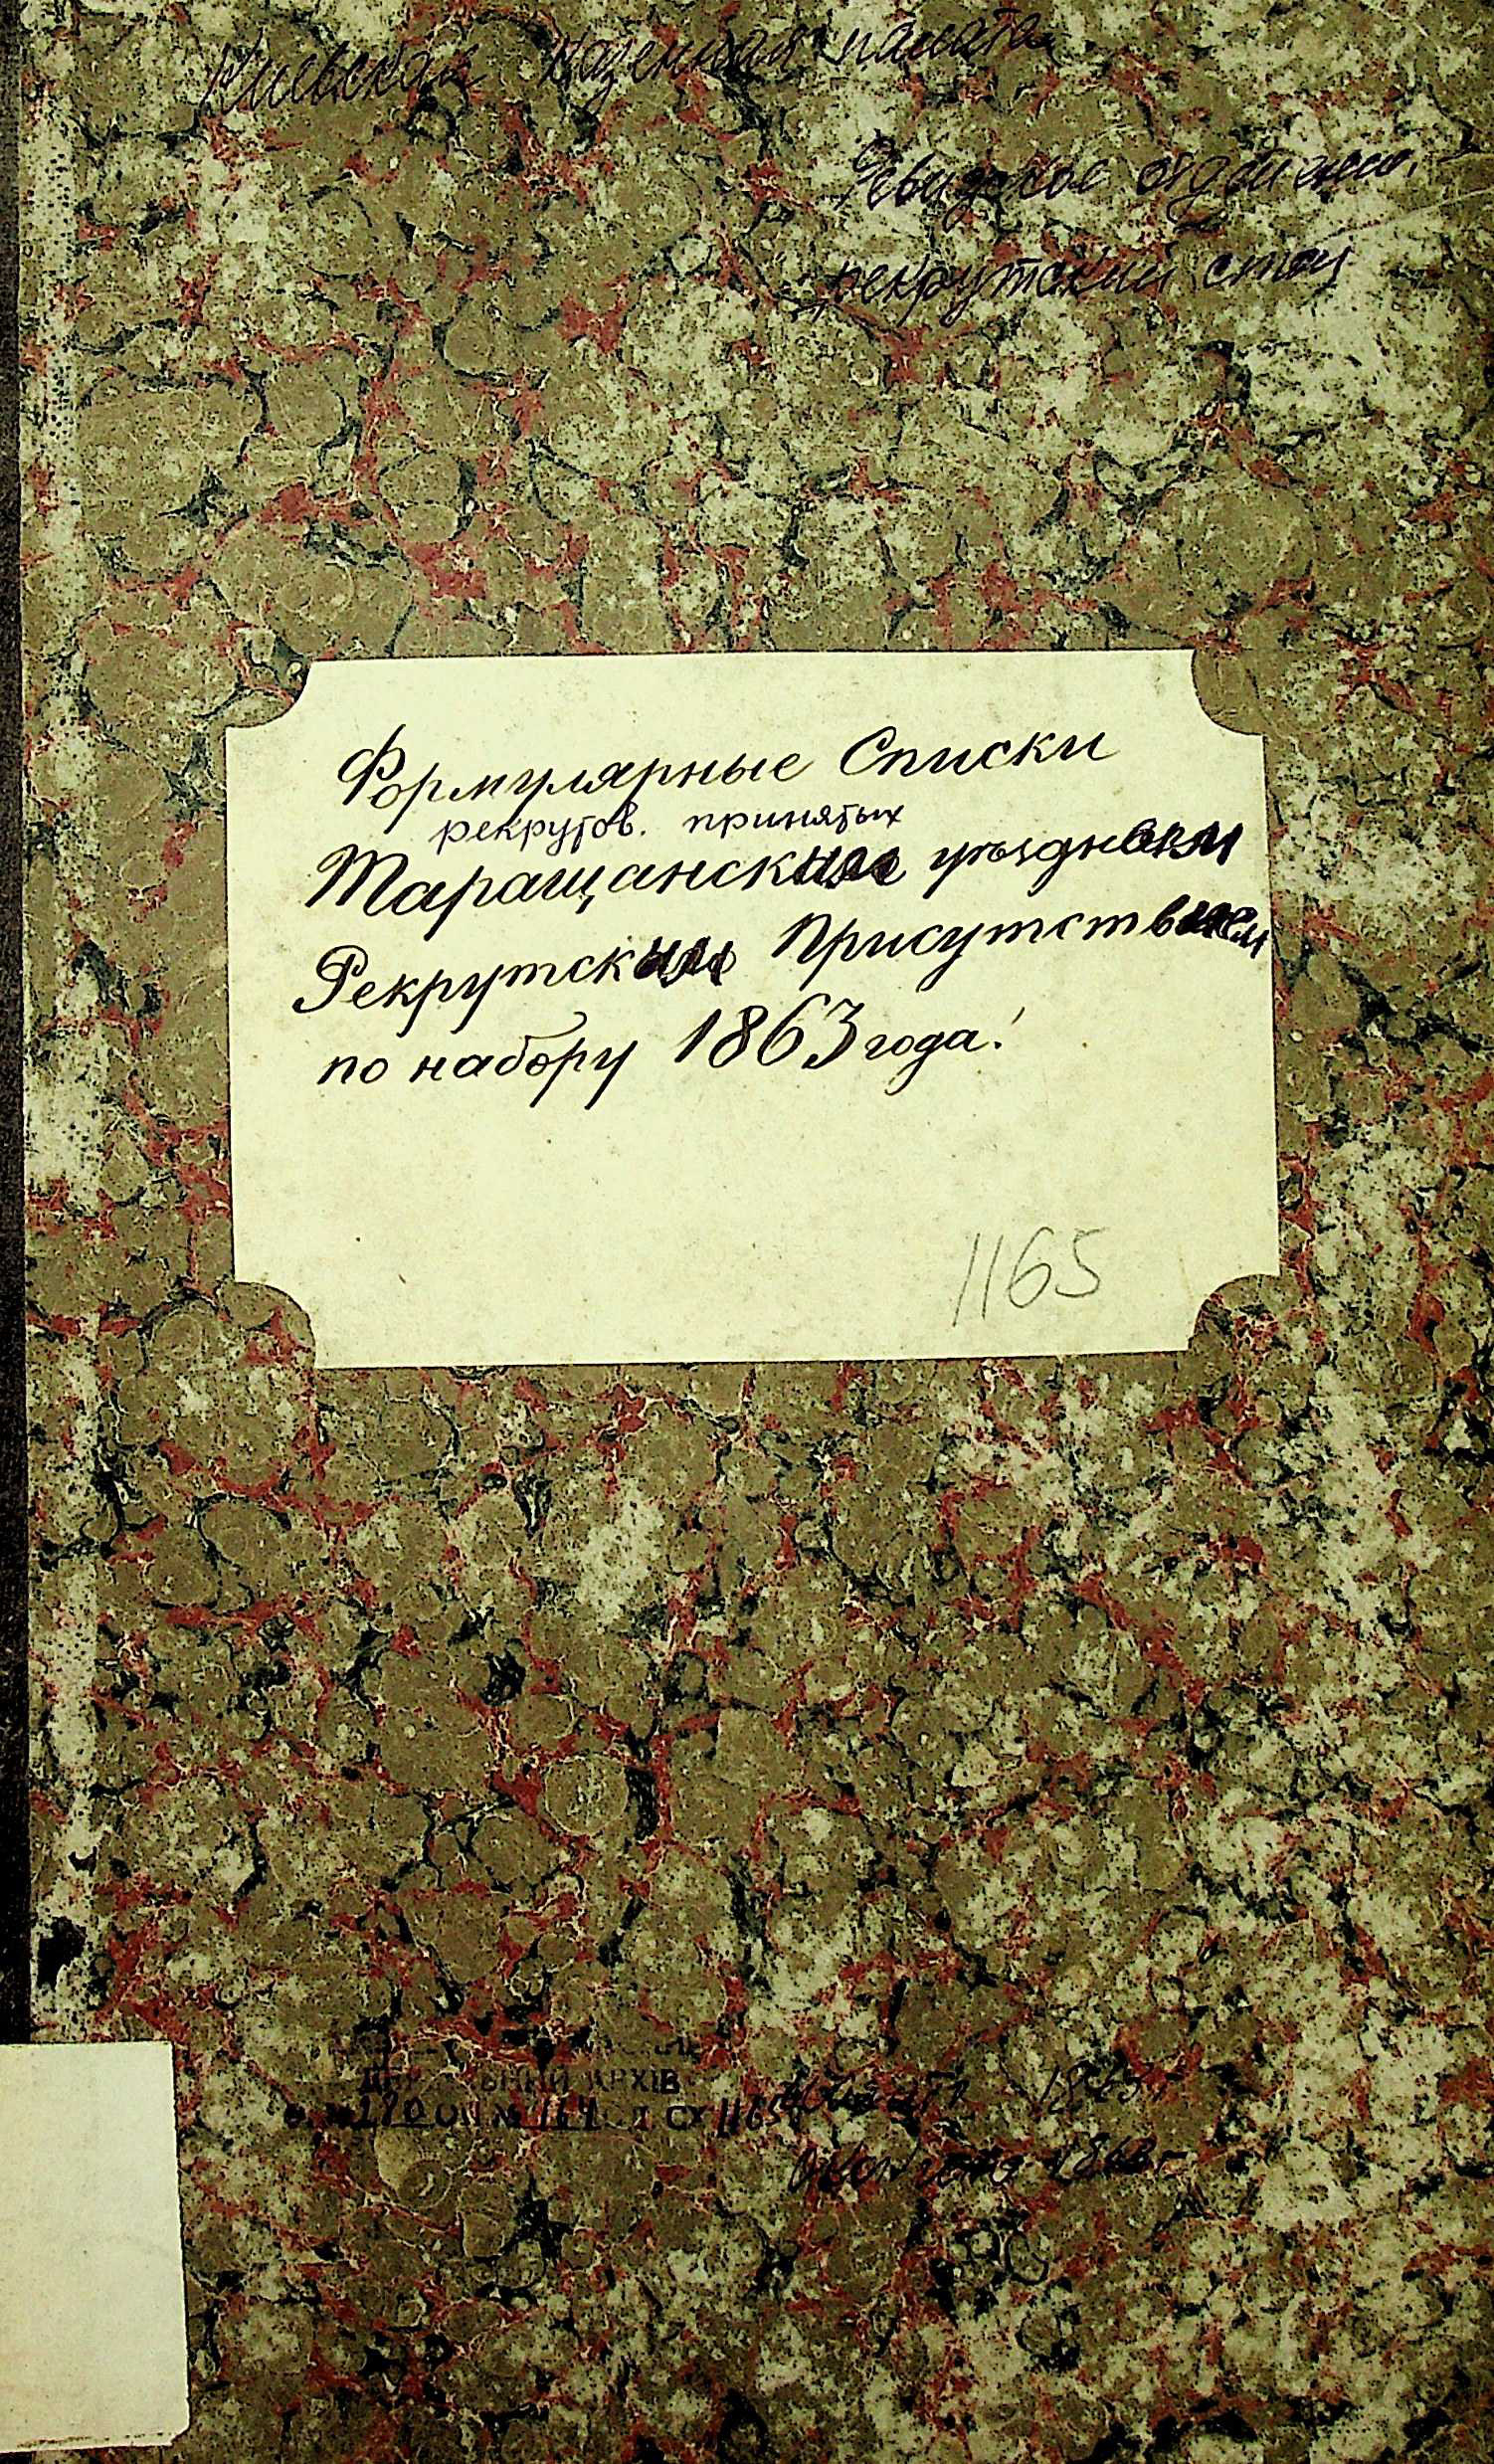 Киевская Казенная палата
Ревизское отделение.
рекрутский стол
Формулярные Списки
рекрутов. принятых
Таращанским уездным
Рекрутским Присутствием
по набору 1863 года.
1165
АРХІВ
1165
1863 г
Окончено 1863 г